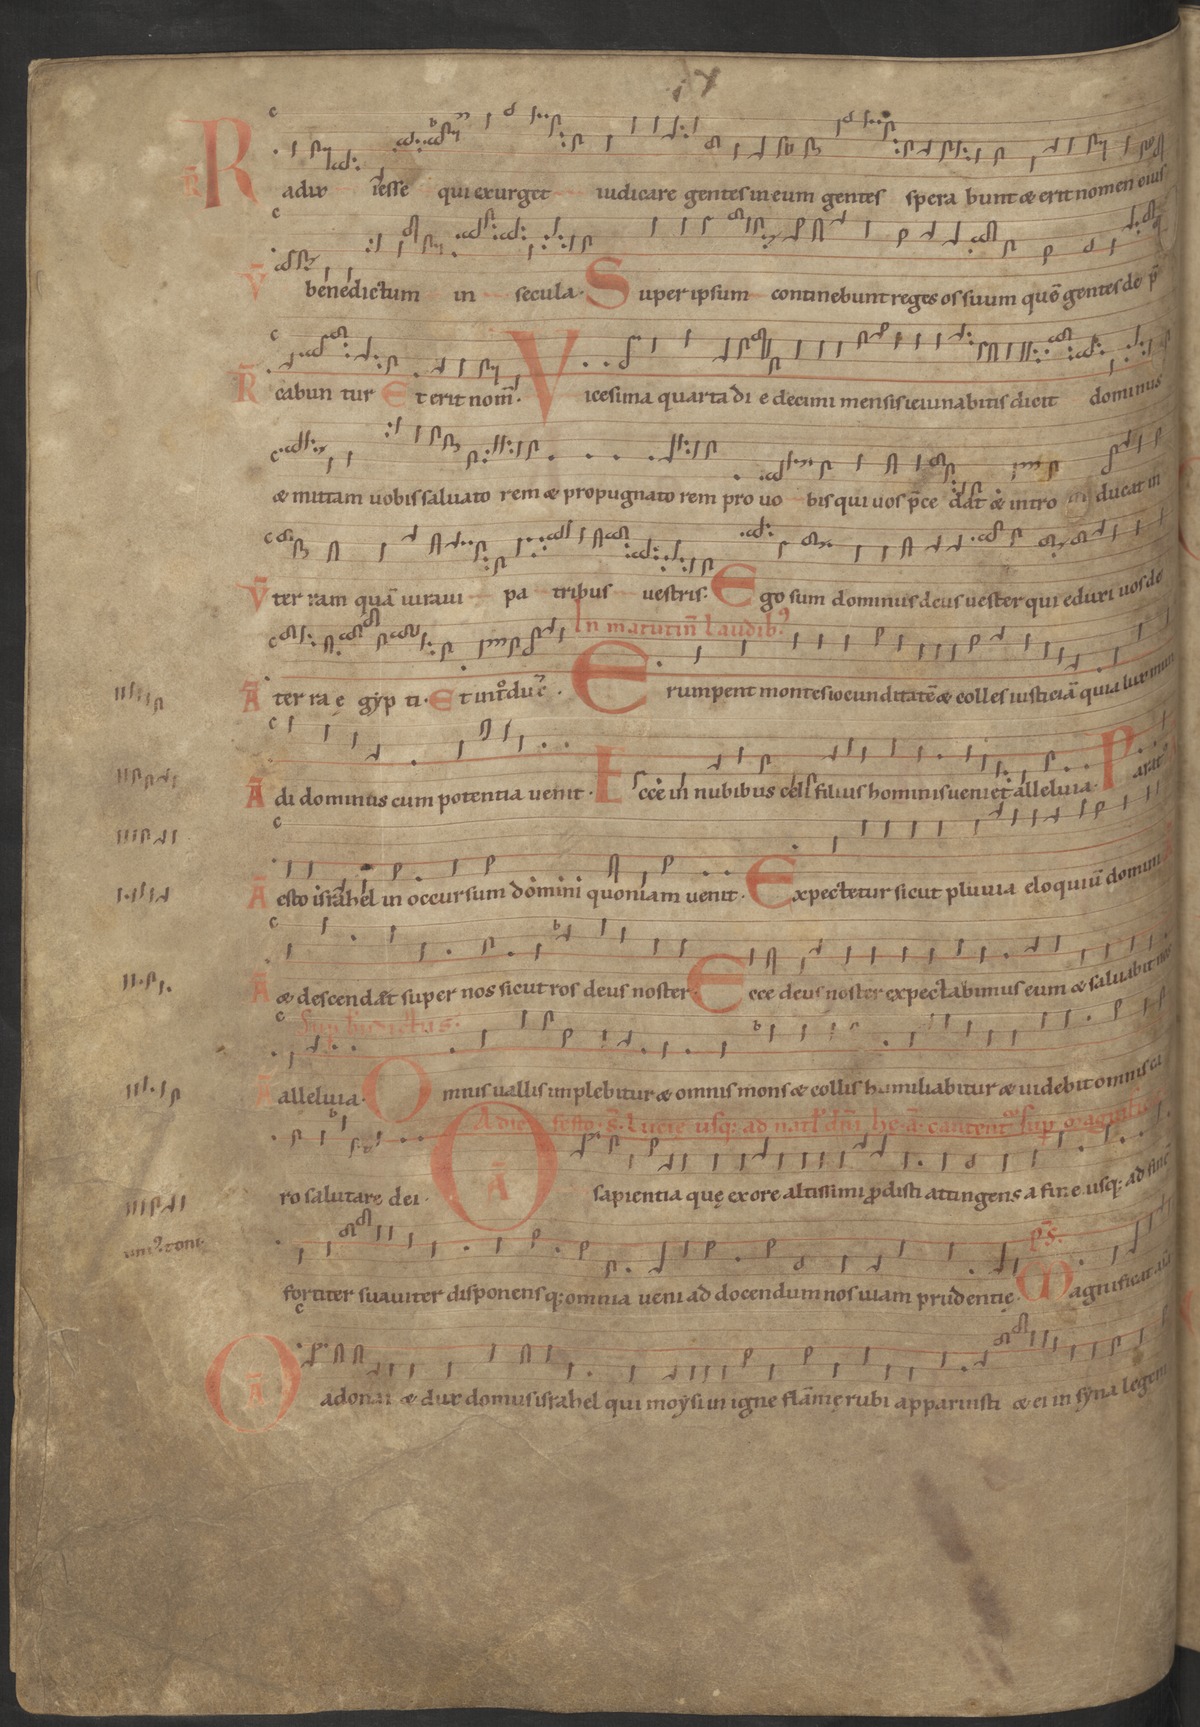 R̄ Radix iesse qui exurget iudicare gentes in eum gentes spera bunt & erit nomen eius
V̄ benedictum in secula. Super ipsum continebunt reges os suum quō gentes de p̄
R̄ cabun tur Et erit nom̄. Vicesima quarta di e decimi mensis ieiunabitis dicit dominus
& mittam uobis saluato rem & propugnato rem pro uo bis qui uos p̄ce dat & intro ducat in
V̄ ter ram quā iuraui pa tribus uestris. Ego sum dominus deus uester qui eduxi uos de
In matutin̄ laudib9
Ā ter ra ę gyp ti. Et introduc̄. Erumpent montes iocunditatē & colles iusticiā quia lux mun
Ā di dominus cum potentia uenit. Ecce in nubibus cęli filius hominis ueniet alleluia. Parat
Ā esto israhel in occursum domini quoniam uenit. Expectetur sicut pluuia eloquiū domini
Ā & descendat super nos sicut ros deus noster. Ecce deus noster expectabimus eum & saluabit nos
Ā alleluia. Omnis uallis implebitur & omnis mons & collis humiliabitur & uidebit omnis ca
A die festo s̄. Lucie usq; ad nat̄ dn̄i
ro salutare dei. O Ā sapientia quę ex ore altissimi prodisti attingens a fine usq; ad finē
p̄s.
fortiter suauiter disponensq; omnia ueni ad docendum nos uiam prudentię. Magnificat
O Ā adonai & dux domus israhel qui moysi in igne flammę rubi apparuisti & ei in syna legem